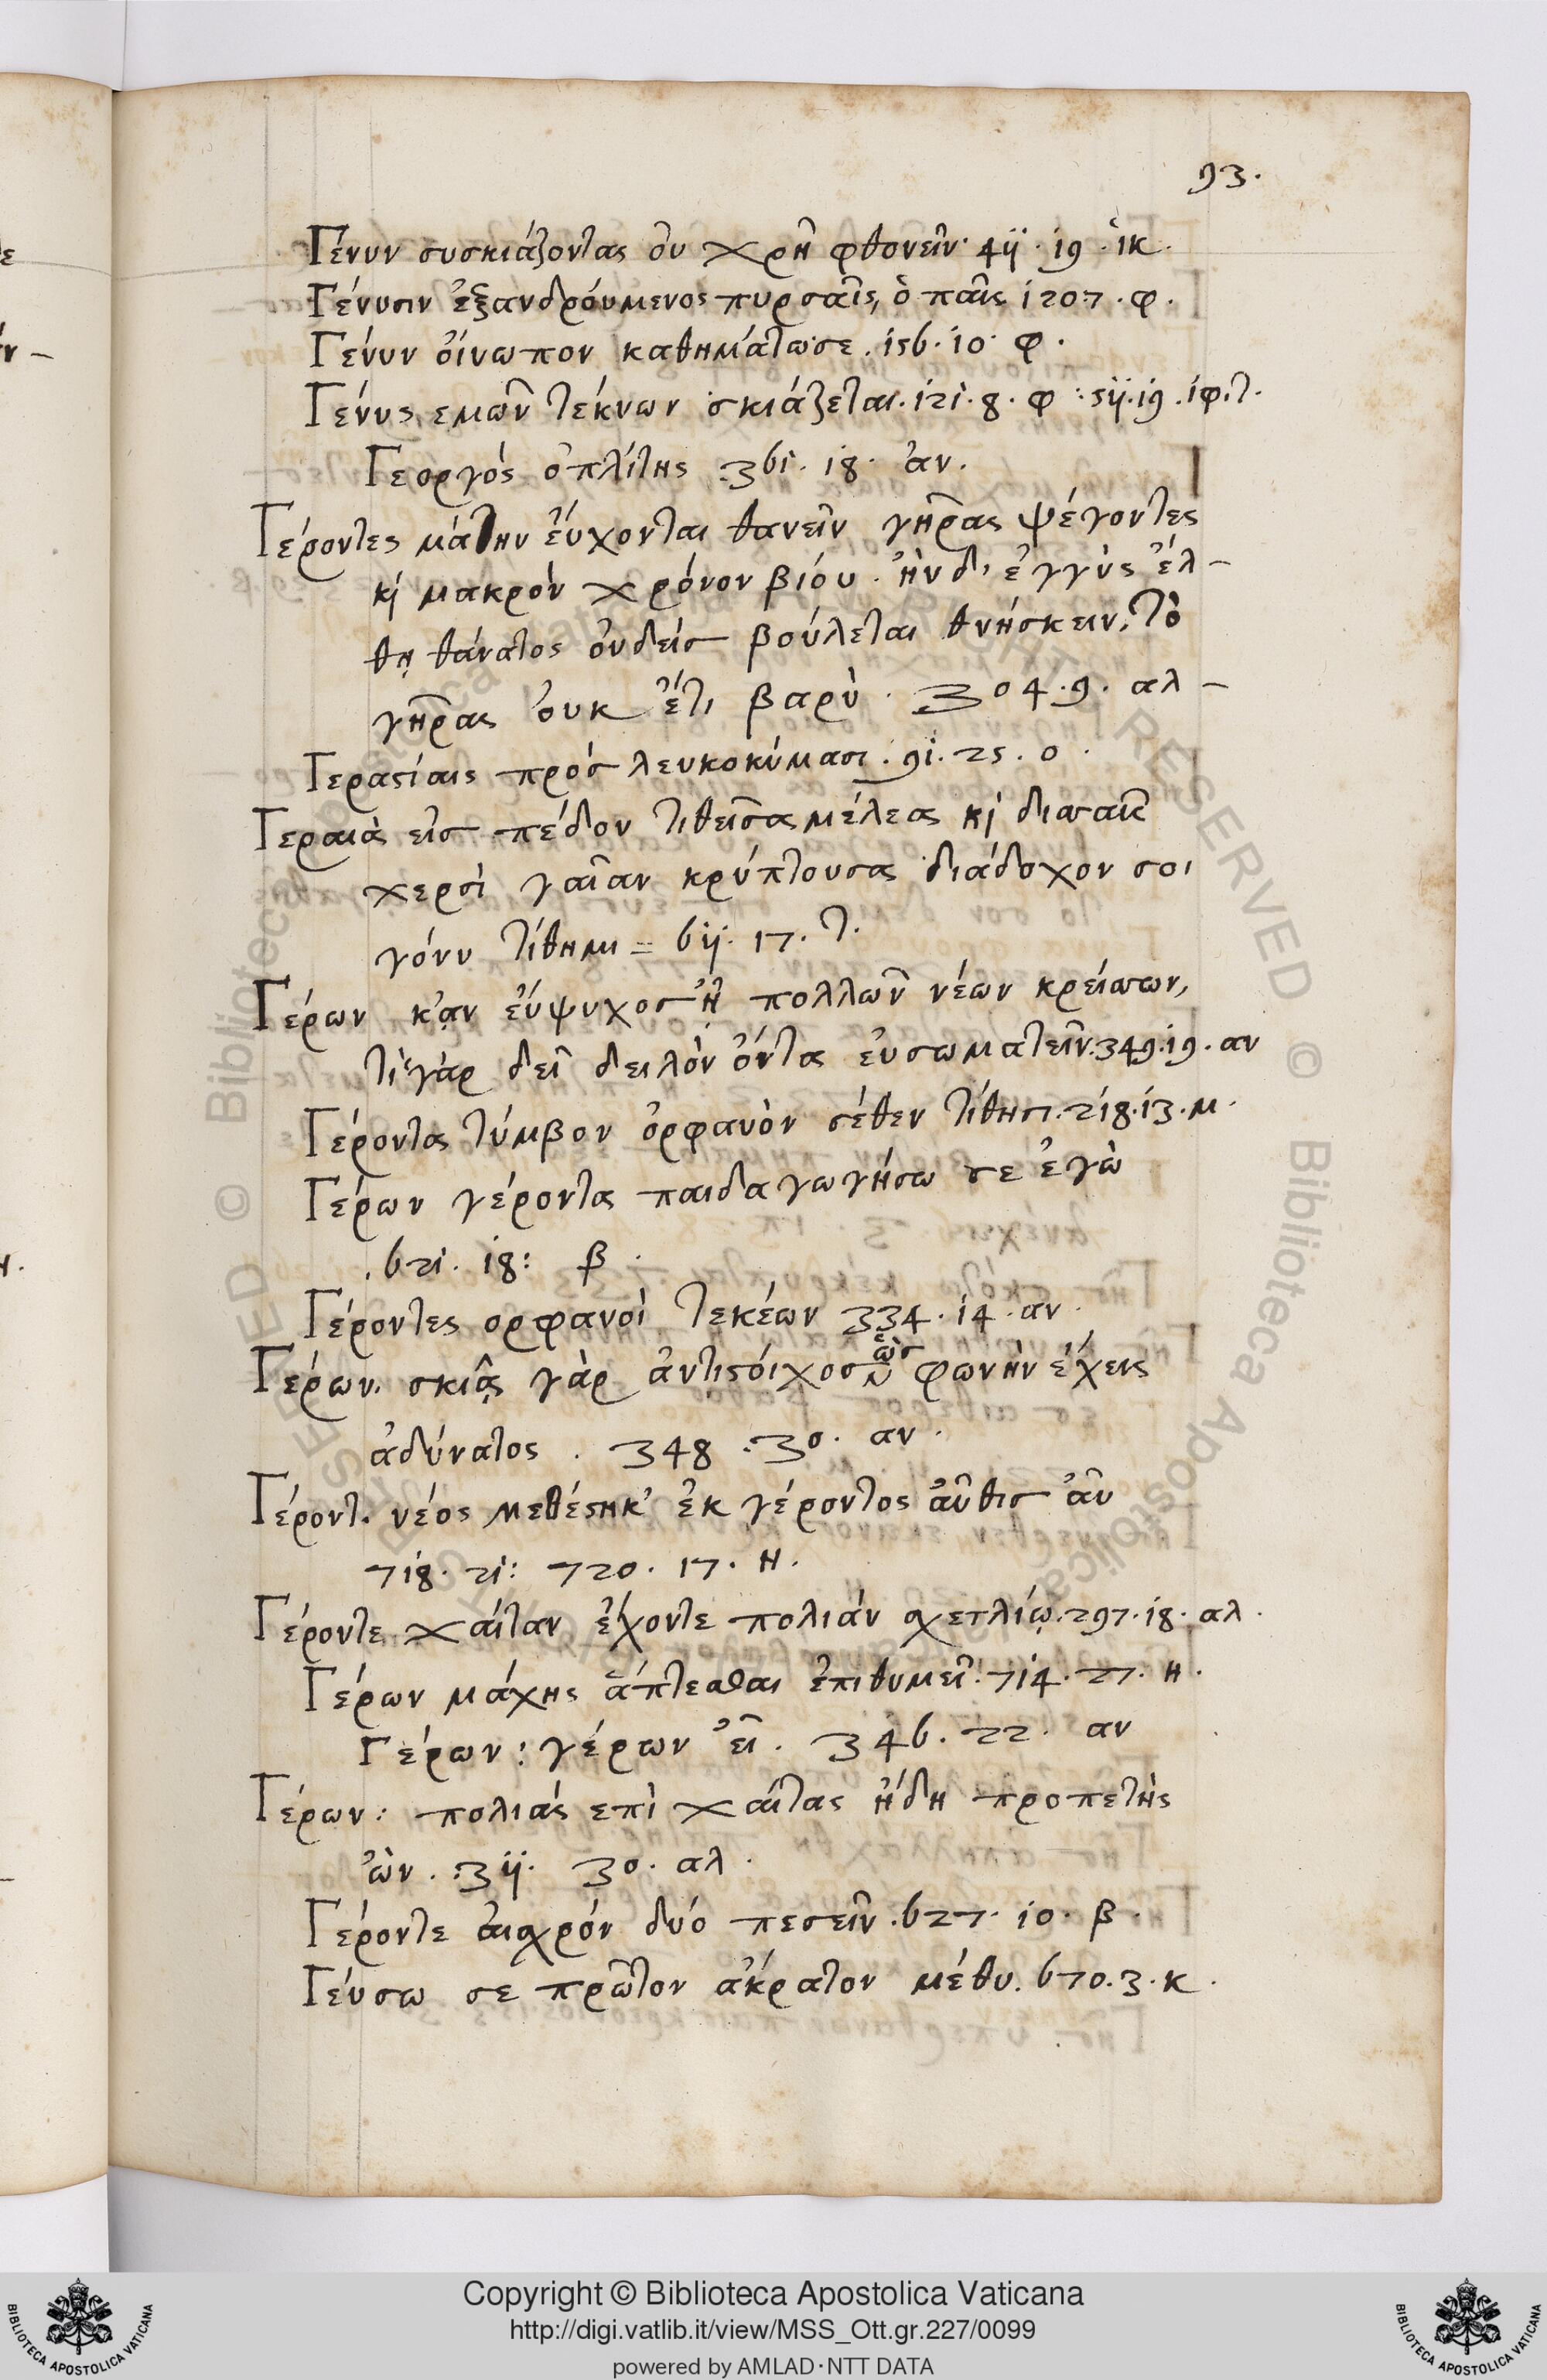 93.
Γένυν συσκιάζοντας ὀυ χρῆ φθονεῖν· 4ij · i9 · ἱκ.
Γένυσιν ἐξανδρόυμενος πυρσαῖς, ὁ παῖς i20·7 · φ.
Γένυν ὀίνωπον καθημάτωσε. i56· i0· φ.
Γένυς εμῶν τέκνων σκιάζεται. i2i· 8 · φ : 5ij· i9 . ίφ.τ.
Γεοργός ὁπλίτης :36i· i8· ἀν.
Γέροντες μάτην ἐύχονται θανεῖν γῆρας ψέγοντες
κὶ μακρὸν χρόνον βιόυ · ἢν δ' ἐγγὺς ἔλ-
θῃ θάνατος ὀυδείς βούλεται θνήσκειν, τὸ
γῆρας ὀυκ ἔτι βαρὺ · 304·9· αλ -
Γεραςίαις πρός λευκοκύμασι. 9i. 25. ο ·
Γεραιὰ εἰς πέδον τιθεῖσα μέλεα κὶ δισσαῖς
χερσὶ γαῖαν κρύπτουσα διάδοχον σοι
γόνυ τίθημι = 6ij· 17. τ.
Γέρων κ'ἂν ἐύψυχος ᾖ πολλῶν νέων κρείσσων,
τί γὰρ δεῖ δειλὸν ὄντα ἐυσωματεῖν. 349·i9· αν
Γέροντα τύμβον ὀρφανὸν σέθεν τίθησι. 2i8·i3·μ·
Γέρων γέροντα παιδαγωγήσω σε ἐγὼ
. 62i. i8: β ·
Γέροντες ορφανοὶ τεκέων 334·i4·αν·
Γέρων· σκιᾷς γὰρ ἀντιςόιχος ὡς φωνὴν ἔχεις
ἀδύνατος . 348 :30· αν ·
Γέροντ. νέος μεθέςηκ' ἐκ γέροντος ἀῦθις ἀῦ
7i8· 2i: 720. 17. η.
Γέροντε χαίταν ἔχοντε πολιάν σχετλίῳ. 297·i8·αλ.
Γέρων μάχης ἅπτεσθαι ἐπιθυμεῖ· 7i4· 27· η.
Γέρων: γέρων ἐῖ . 346. 22 · αν
Γέρων: πολιάς επὶ χαίτας ἤδη προπετὴς
ὢν . :3ij· 30. αλ ·
Γέροντε ἀισχρόν δυό πεσεῖν. 627· i0· β ·
Γεύσω σε πρῶτον ἀκρατον μέθυ. 670. 3. κ.
Copyright © Biblioteca Apostolica Vaticana
http://digi.vatlib.it/view/MSS_Ott.gr.227/0099
powered by AMLAD·NTT DATA